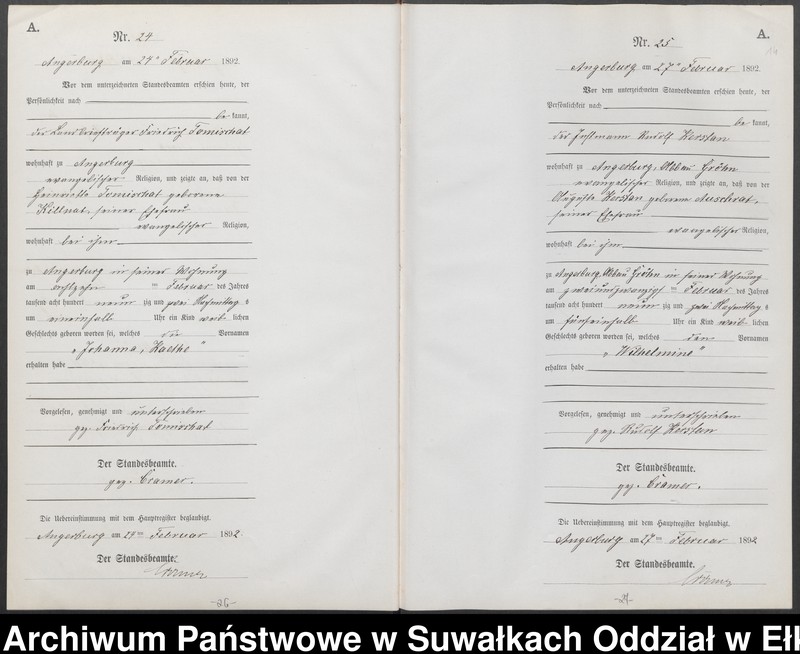 A.
Nr. 24
Angerburg am 24ten Februar 1892.
Vor dem unterzeichneten Standesbeamten erschien heute, der
Persönlichkeit nach
be kannt,
der Landbriefträger Friedrich Tomischat
wohnhaft zu Angerburg
evangelischer Religion, und zeigte an, daß von der
Henriette Tomischat geborene
Killnat, seiner Ehefrau
evangelischer Religion,
wohnhaft bei ihm
zu Angerburg in seiner Wohnung
am achtzehn ten Februar des Jahres
tausend acht hundert neun zig und zwei Nachmittag s
um eineinhalb Uhr ein Kind weib lichen
Geschlechts geboren worden sei, welches die Vornamen
„Johanna, Kaethe"
erhalten habe
Vorgelesen, genehmigt und unterschrieben
gez. Friedrich Tomischat
Der Standesbeamte.
gez. Cramer.
Die Uebereinstimmung mit dem Hauptregister beglaubigt.
Angerburg am 24ten Februar 1892.
Der Standesbeamte.
Cramer
-26-
A.
Nr. 25
Angerburg am 27ten Februar 1892.
Vor dem unterzeichneten Standesbeamten erschien heute, der
Persönlichkeit nach
be kannt,
der Instmann Rudolf Kerstan
wohnhaft zu Angerburg, Abbau Gröhn
evangelischer Religion, und zeigte an, daß von der
Auguste Kerstan geborene
seiner Ehefrau
evangelischer Religion,
wohnhaft bei ihm
zu Angerburg, Abbau Gröhn in seiner Wohnung
am zweiundzwanzigs ten Februar des Jahres
tausend acht hundert neun zig und zwei Nachmittag s
um fünfeinhalb Uhr ein Kind weib lichen
Geschlechts geboren worden sei, welches den Vornamen
„Wilhelmine"
erhalten habe
Vorgelesen, genehmigt und unterschrieben
gez. Rudolf Kerstan
Der Standesbeamte.
gez. Cramer.
Die Uebereinstimmung mit dem Hauptregister beglaubigt.
Angerburg am 27ten Februar 1892
Der Standesbeamte.
Cramer
-27-
Archiwum Państwowe w Suwałkach Oddział w Ełk